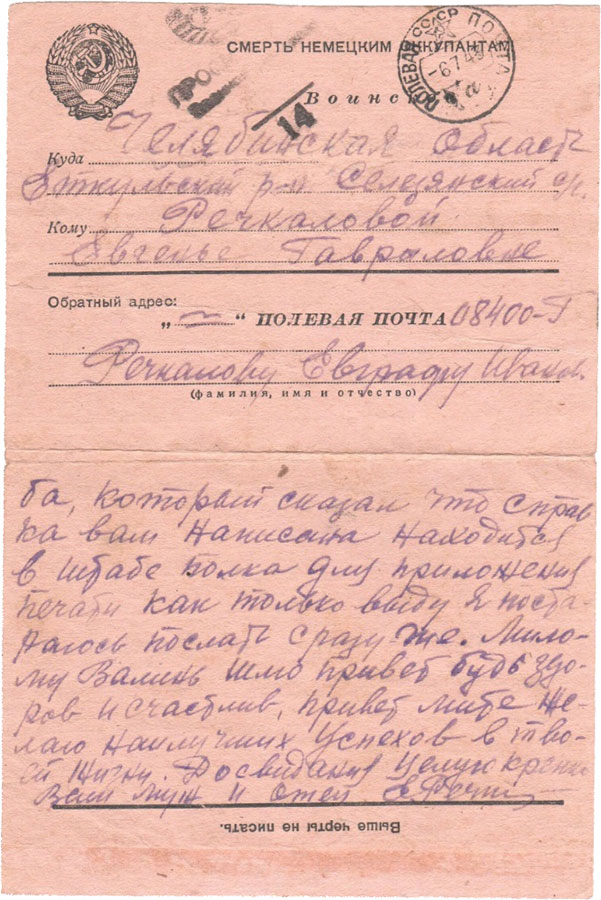 СМЕРТЬ НЕМЕЦКИМ ОККУПАНТАМ
ПОЛЕВАЯ ПОЧТА
СССР
-6.7.43
14
Воинск
Куда Челябинская область
Еткульский р-н. Селезянский с/с.
Кому Речкаловой
Евгенье Гавриловне
Обратный адрес:
„ — “ ПОЛЕВАЯ ПОЧТА 08400-Г
Речкалову Евграфу Иванов.
(фамилия, имя и отчество)
ба, который сказал что справ
ка вам написана находится
в штабе полка для приложения
печати как только выду я поста
раюсь послать сразу же. Мило-
му Валинь шлю привет будь здо-
ров и счастлив, привет Мите же-
лаю наилучших успехов в тво-
ей жизни. Досвидания целую крепко
Ваш муж и отец Е Речк
Выше черты не писать.